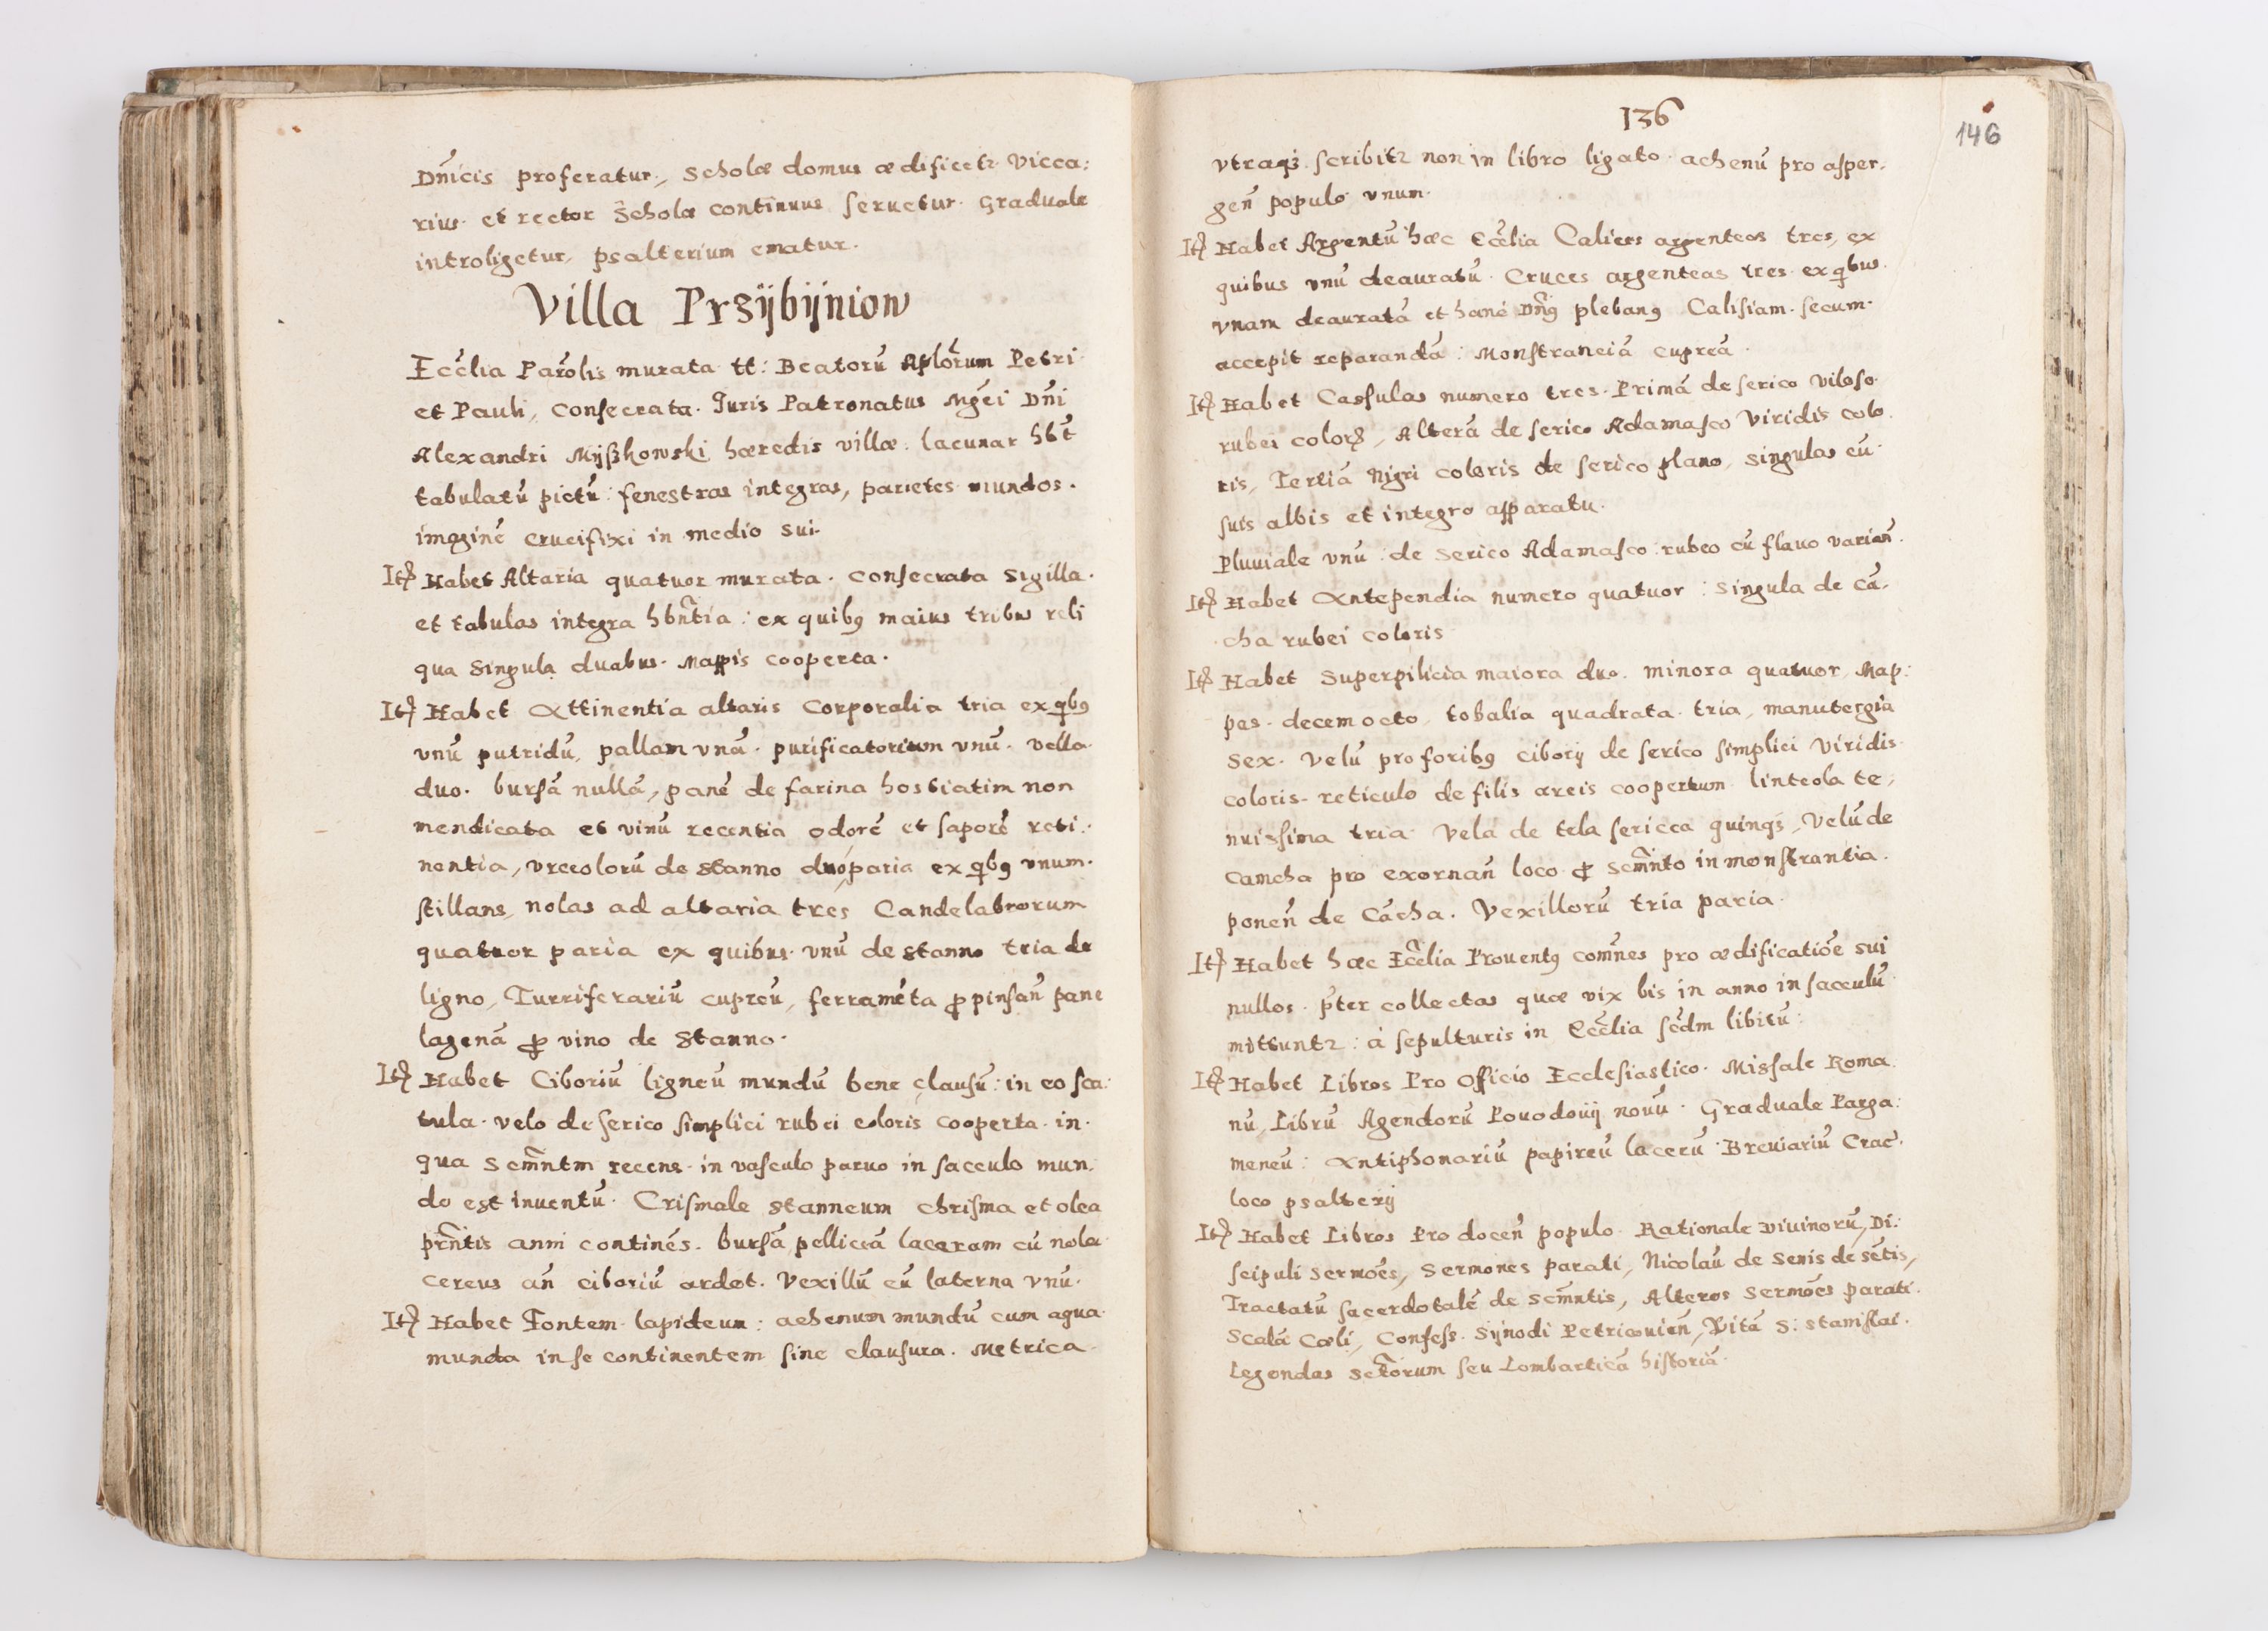 Dn̄icis proferatur, Scholæ domus ædificetr Vicca:
rius et rector Scholæ continuus seruetur. Graduale
introligetur, psalterium ematur.
Villa Prsÿbÿniow
Eccl̄ia Paro̅lis murata tt: Beatorū Apl̄orum Petri
et Pauli, Consecrata. Juris Patronatus Mgc̄i Dn̄i
Alexandri Mÿszkowski hæredis villæ: lacunar hb̄t
tabulatū pictū: fenestras integras, parietes mundos.
imaginē Crucifixi in medio sui.
It. Habet Altaria quatuor murata. Consecrata Sigilla.
et tabulas integra hbn̄tia: ex quibꝯ maius tribus reli
qua Singula duabus. Mappis cooperta.
It. Habet Attinentia altaris Corporalia tria ex qbꝯ
vnū putridū, pallam vnā. purificatorium vnū. Vella
duo. bursā nullā, panē de farina hostiatim non
mendicata et vinū recentia odorē et saporē reti:
nentia, vrceolorū de Stanno duo paria ex qbꝯ vnum.
stillans, nolas ad altaria tres Candelabrorum
quatuor paria ex quibus vnū de Stanno tria de
ligno, Turriferariū cupreū, ferramēta ꝓ pinsan̄ pane
lagenā ꝓ vino de Stanno.
It. Habet Ciboriū ligneū mundū bene clausū: in eo sca:
tula velo de serico simplici rubei coloris cooperta. in.
qua Scm̄ntm recens in vasculo paruo in sacculo mun,
do est inuentū. Crismale stanneum chrisma et olea
prn̄tis anni continēs. bursā pelliceā laceram cū nola
cereus an̄ ciboriū ardet. Vexillū cū laterna vnū.
It. Habet Fontem lapideum: aehenum mundū cum aqua
munda in se continentem sine clausura. Metrica
136
146
vtraqꝫ scribitr non in libro ligato. achenū pro asper,
gen̄ populo vnum.
It. Habet Argentū hæc Eccl̄ia Calices argenteos tres, ex
quibus vnū deauratū. Cruces argenteas tres ex qbus
vnam deauratā et hanc Dn̄ꝯ plebanꝯ Calisiam secum
accepit reparandā: Monstranciā cupreā.
It. Habet Casulas numero tres. Primā de serico viloso
rubei coloris, Alterā de serico Adamasco Viridis colo
ris, Tertiā Nigri coloris de serico plano, singulas cū
suis albis et integro apparatu.
Pluuiale vnū: de Serico Adamasco: rubeo cū flauo varian̄.
It. Habet Antependia numero quatuor: Singula de Cā,
cha rubei coloris
It. Habet Superpilicia maiora duo. minora quatuor, Map:
pas. decem octo. tobalia quadrata. tria, manutergia
Sex. Velū pro foribꝯ ciborij de serico simplici Viridis
coloris. reticulo de filis æreis coopertum linteola te,
nuissima tria. Vela de tela sericea quinqꝫ, Velū de
Camcha pro exornan̄ loco ꝓ Scm̄nto in monstrantia.
ponen̄ de Cācha. Vexillorū tria paria.
It. Habet hæc Eccl̄ia Prouentꝯ com̄nes pro ædificatiōe sui
nullos. p̄ter collectas quæ vix bis in anno in sacculū
mittuntr: à sepulturis in Eccl̄ia scd̄m libitū:
It. Habet Libros Pro Officio Ecclesiastico. Missale Roma
nū, Librū Agendorū Pouodouij nouū. Graduale Parga:
meneū: Antiphonariū papireū lacerū. Breuiariū Crac.
loco psalterij
It. Habet Libros Pro docen̄ populo. Rationale Diuinorū, Di:
scipuli Sermōes, Sermones parati, Nicolaū de Senis de sctis,
Tractatū sacerdotalē de Scm̄ntis, Alteros Sermōes parati.
Scalā Cœli, Confess. Sÿnodi Petricouien̄, Vitā S: Stanislai.
Legendas Sctorum seu Lombarticā historiā.